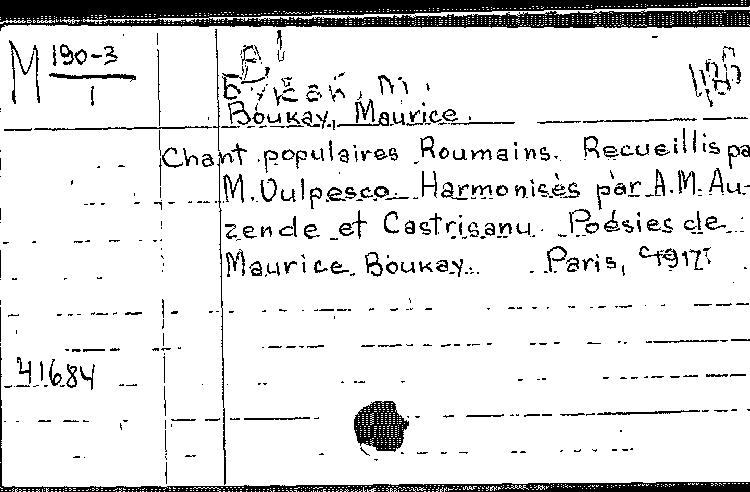 M 190-3
1
Букай, М.
Boukay, Maurice.
Chant populaires Roumains. Recueillis pa
M. Vulpesco. Harmonisès par A.M. Au-
zende et Castrisanu. Poésies de
Maurice Boukay. Paris,
41684